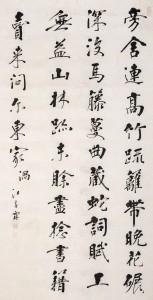 旁舍連高竹疏籬帶晚花碾
深沒馬藤蔓曲藏蛇詞賦工
無益山林跡未賒盡捻書籍
賣來問尔東家 渦 江春霖